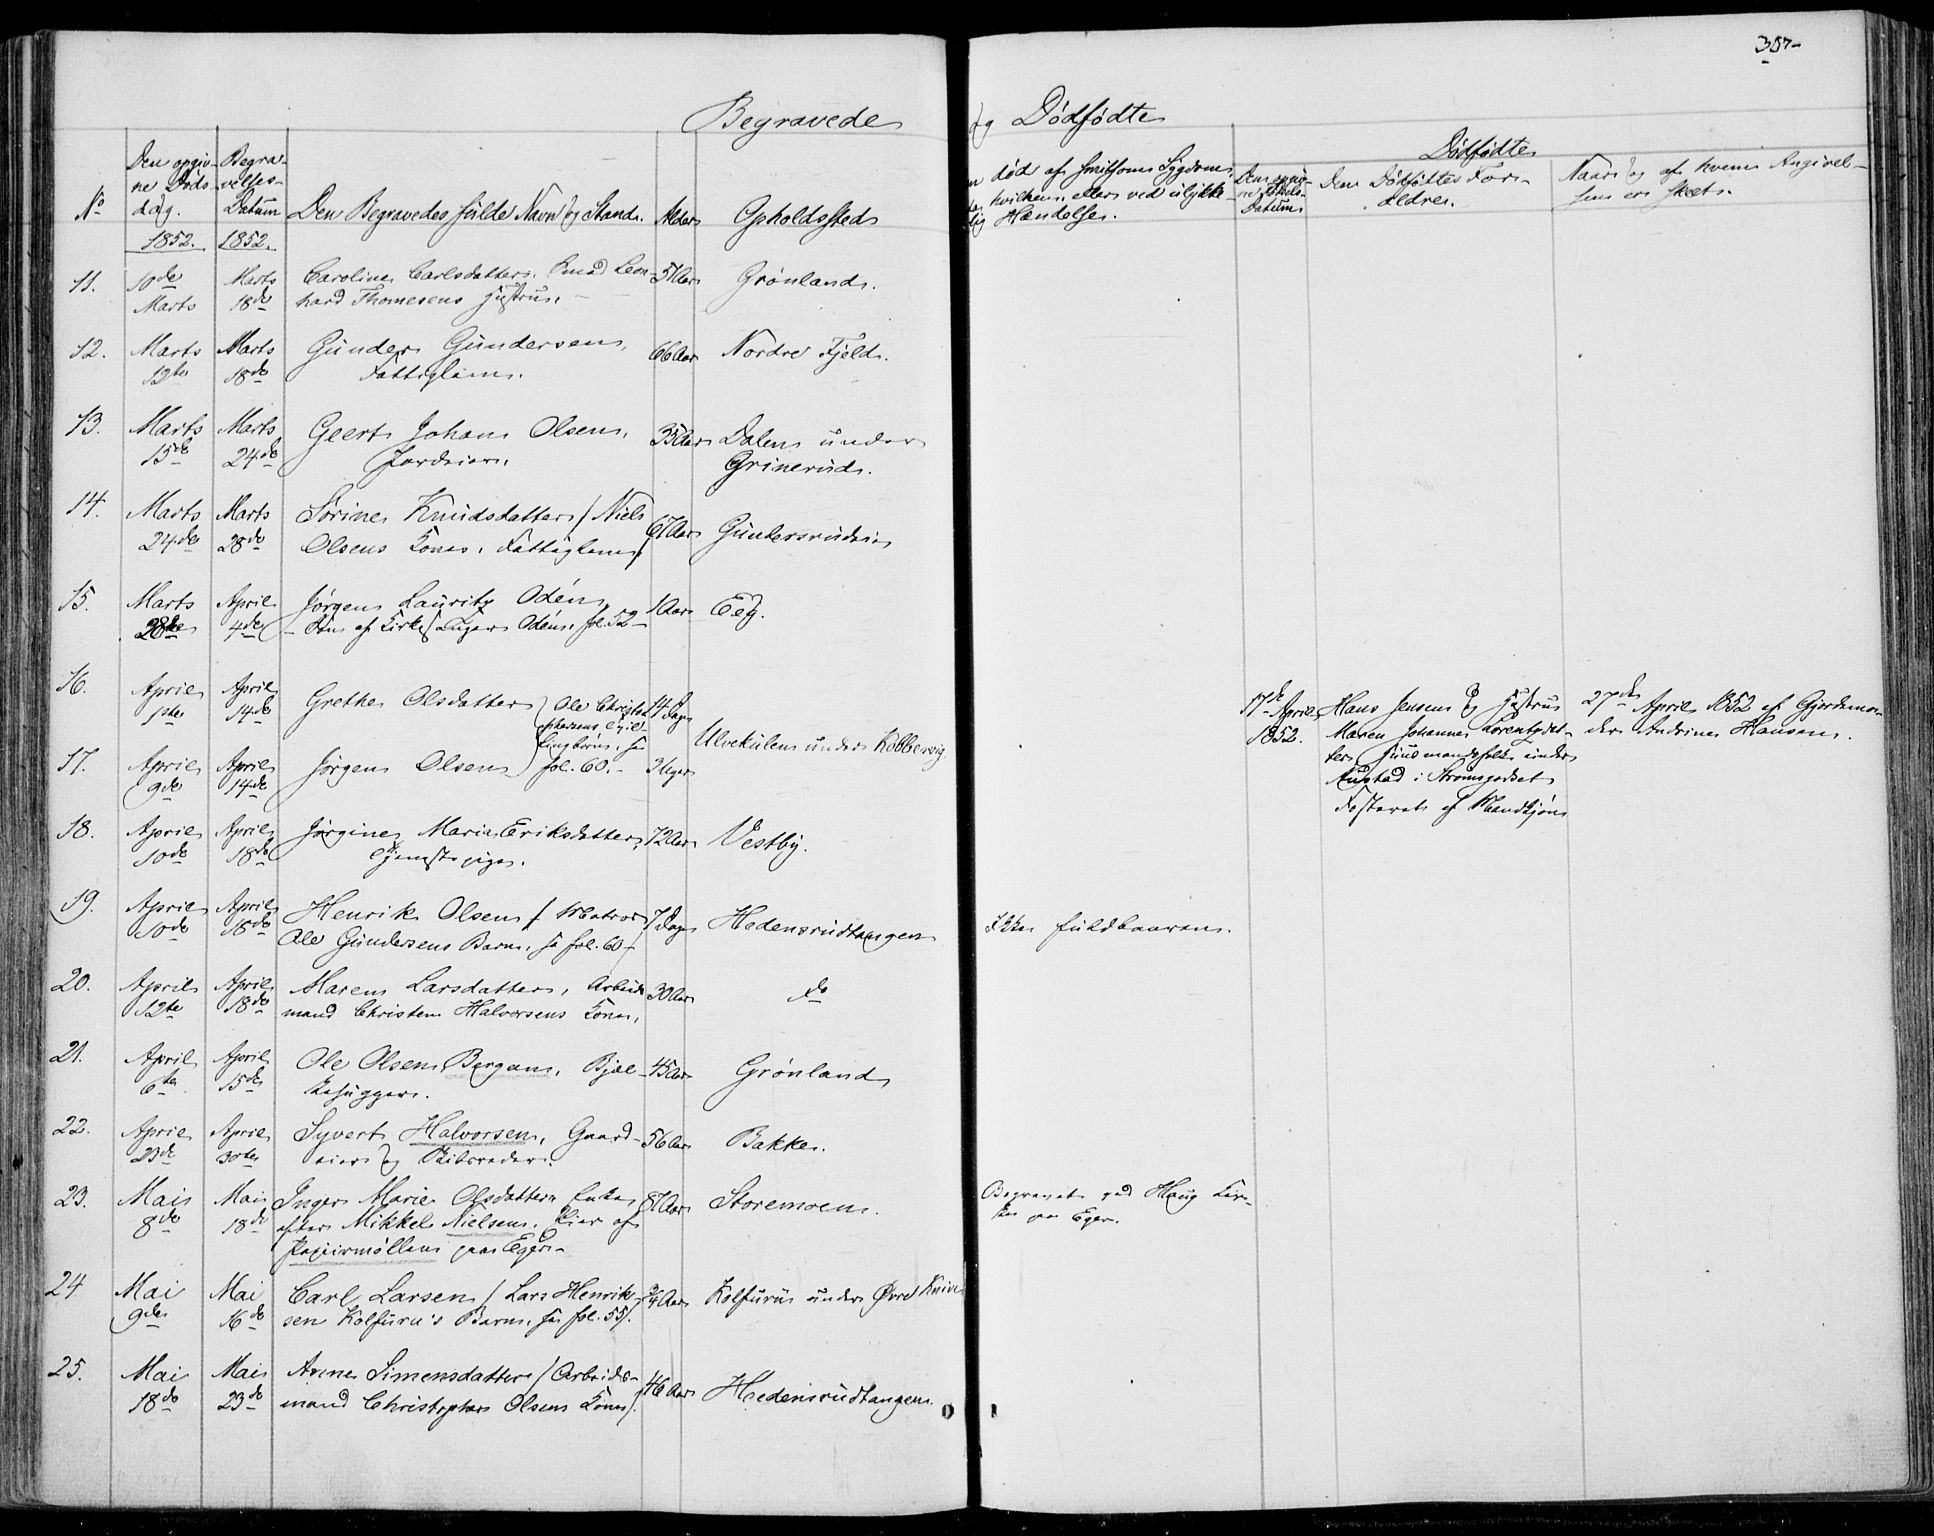 307
Begravede og Dødfødte
Dødfødte
No
Den opgivne Dødsdag.
Begravelses-Datum
Den Begravedes fulde Navn og Stand.
Alder
Opholdssted
død af smitsom Sygdom, hvilken, eller ved ulykkelig Hændelse.
Datum
Den Dødfødtes Forældre.
Naar og af hvem Angivelsen er skeet.
1852. 1852.
11. 10de Marts Marts 18de Caroline Carlsdatter, Leonhard Thomesens Hustru. 51 Aar Grønland.
12. Marts 12te Marts 18de Gunder Gundersen, Fattiglem. 66 Aar Nordre Fjeld.
13. Marts 15de Marts 24de Geert Johan Olsen, Jordeier. 35 Aar Dalen under Grinerud.
14. Marts 24de Marts 28de Sørine Knudsdatter / Niels Olsens Kone, Fattiglem / 67 Aar Gundersrudeie
15. Marts 28de April 4de Jørgen Lauritz Odén, Søn af Kirkesanger Odén, fol. 52 1 Aar Eeg.
16. April 1ste April 14de Grethe Olsdatter 14 Dage
Ole Christophersens Tvillingbørn, fol. 60. Ulvekulen under Kobbervig
17. April 9de April 14de Jørgen Olsen 3 Uger
17de April 1852. Hans Jensen og Hustru Maren Johanne Lorentzdatter, Huusmandsfolk under Austad i Strømsgodset
Fosteret af Mandkjøn
27de April 1852 af Gjordemoder Andrine Hansen.
18. April 10de April 18de Jørgine Maria Eriksdatter, Tjenestepige. 72 Aar Vestby.
19. April 10de April 18de Henrik Olsen / Matros Ole Gundersens Barn, fol. 60 / 7 Dage Hedensrudtangen Ikke fuldbaaren.
20. April 12te April 18de Maren Larsdatter, Arbeidsmand Christen Halvorsens Kone, 30 Aar do
21. April 6te April 15de Ole Olsen Bergan, Bjælkehugger. 45 Aar Grønland
22. April 23de April 30te Syvert Halvorsen, Gaardeier og Skibsreder. 56 Aar Bakke.
23. Mai 8de Mai 18de Inger Marie Olsdatter Enke efter Mikkel Nielsen, Eier af Papiirmøllen paa Eger. 87 Aar Storemoen. Begravet ved Haug Kirke paa Eger.
24 Mai 9de Mai 16de Carl Larsen / Lars Henriksen Kolfuru's Barn, fol. 55 /. 3/4 Aar Kolfuru under Øvre Knive
25. Mai 18de Mai 23de Anne Simensdatter / Arbeidsmand Christopher Olsens Kone /. 46 Aar Hedensrudtangen.